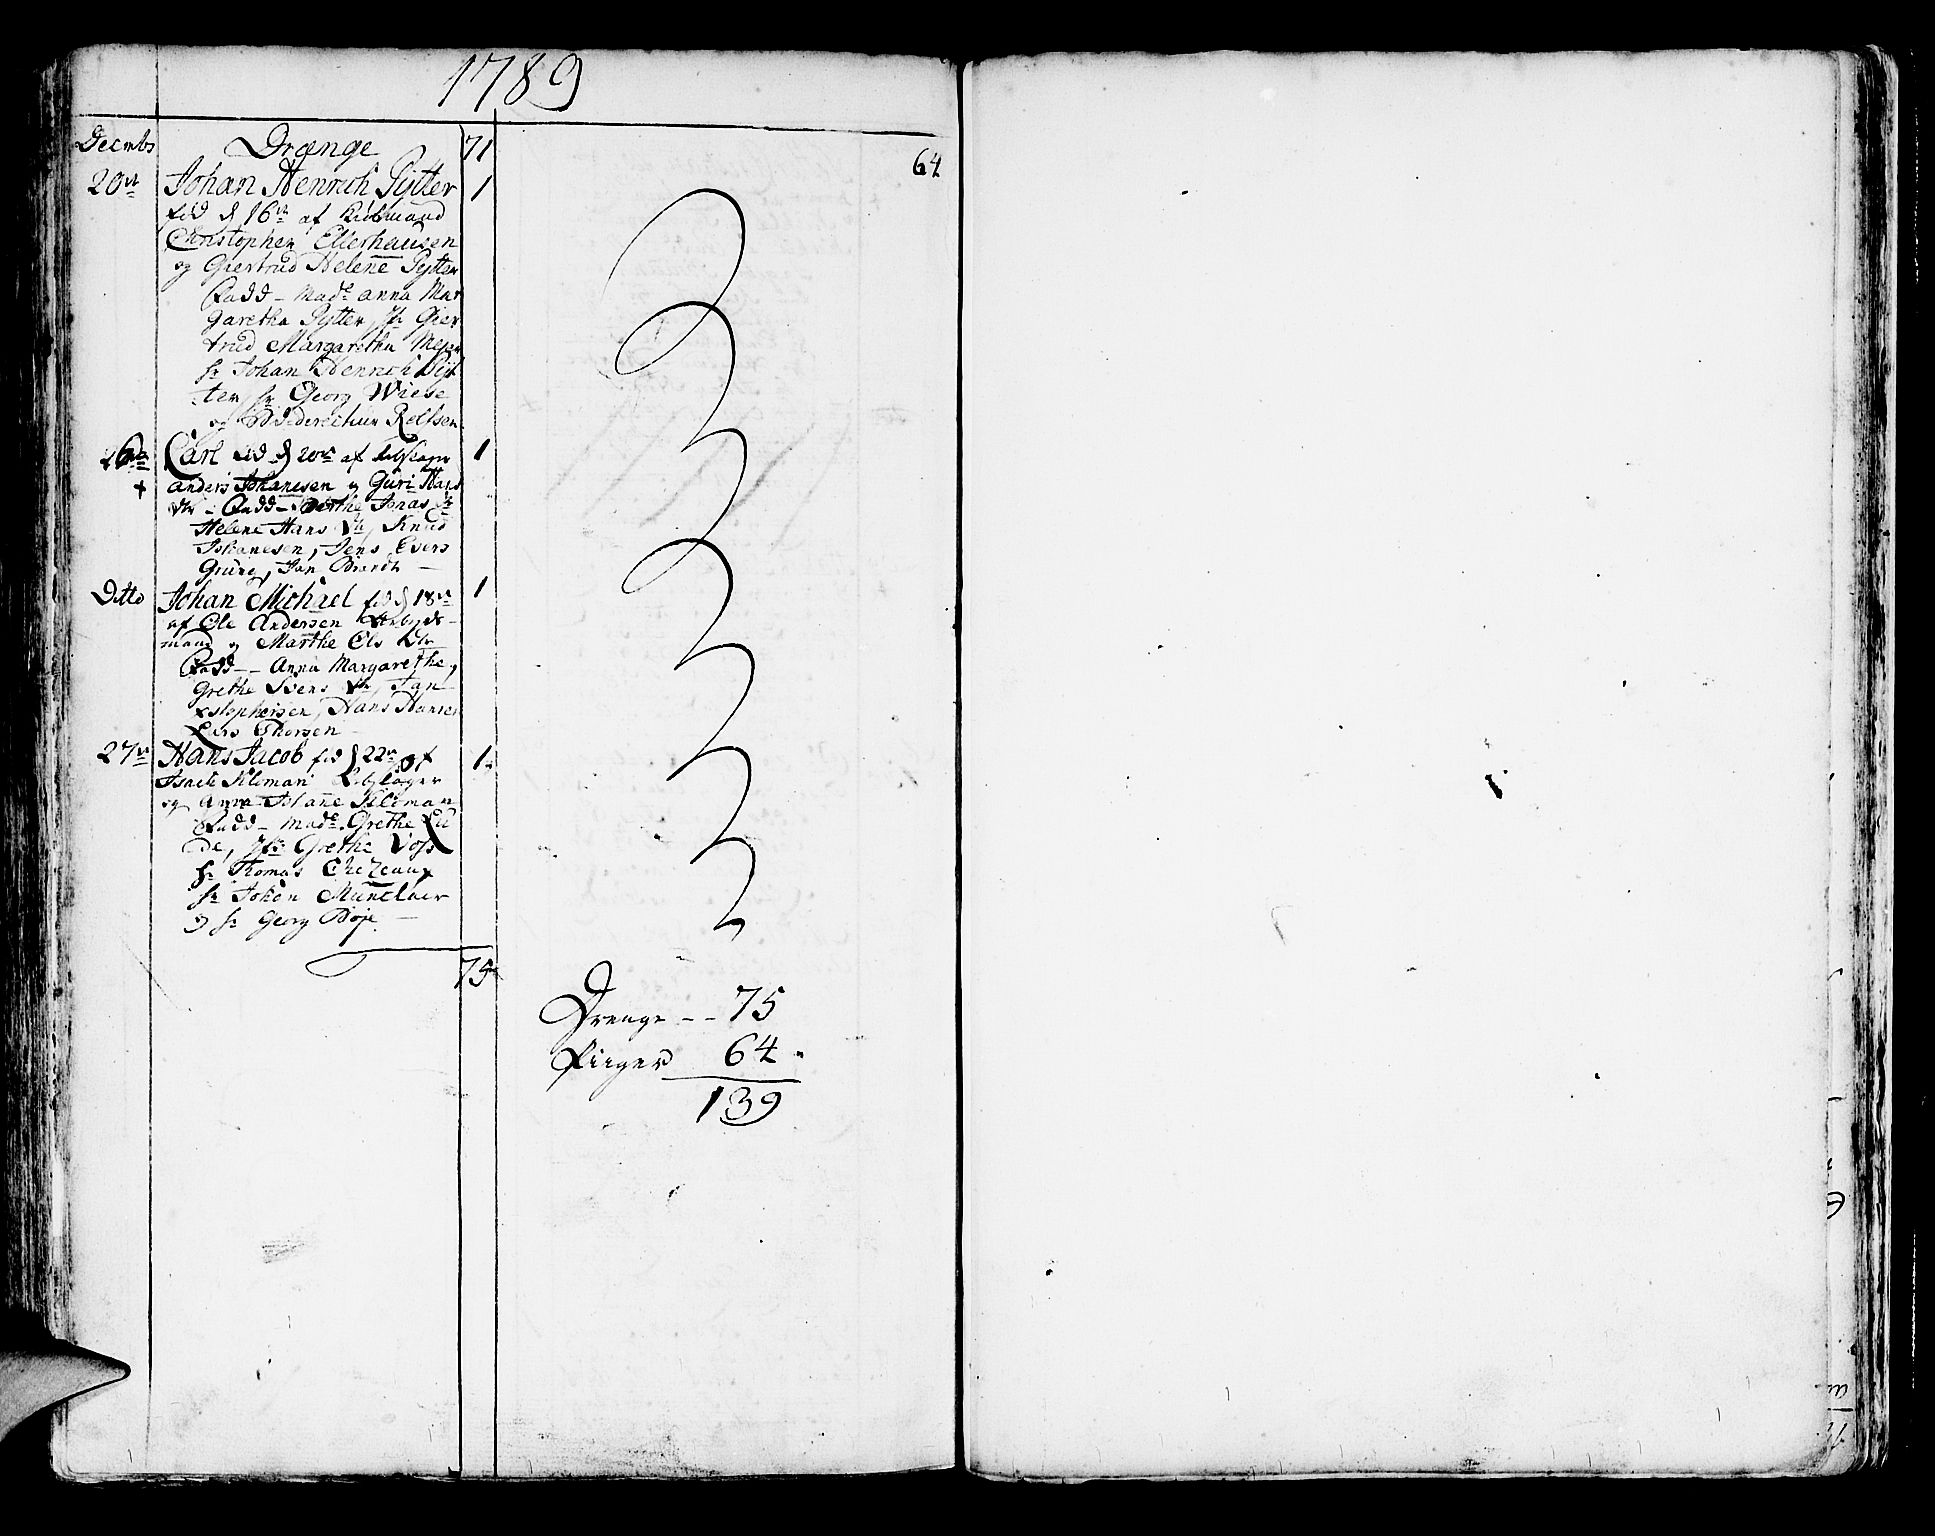 1789
Decmbr Drænge 71
64
20de Johan Henrich Pÿtter 1
fød d 16de af Kiøbmand
Christopher Ellerhausen
og Giertrud Helene Pÿtter
Fadd - Made Anna Mar
garetha Pytter, Jfr Gier
trud Margaretha Meyer
Hr Johan Henrich Pÿt
ter, Hr Georg Wiese
og Diderichur Rolfsen
26de Carl fød d 20de af
+ Anders Johanesen og Guri Hans
Dtr - Fadd - Berthe Jonas Dr
Helene Hans Dtr, Knud
Johanesen, Jens Evers
Grung, Jan Brandt
Ditto Johan Michael fød d 18de 1
af Ole Andersen Arbejds-
mand og Marthe Ols Dtr
Fadd - Anna Margarethe,
Grethe Svens Dtr, Jan
Xstophersen, Hans Hansen
Lars Thorsen
27de Hans Jacob fød d 22de af 1
Isack Kloman
og Anna Johane Kloman
Fadd - Made Grethe Lü
de, Jfr Grethe Voss
Hr Thomas Chezeaux
Hr Johan Muncläer
og Hr Georg Bøje
75
Drenge -- 75
Piiger 64
139